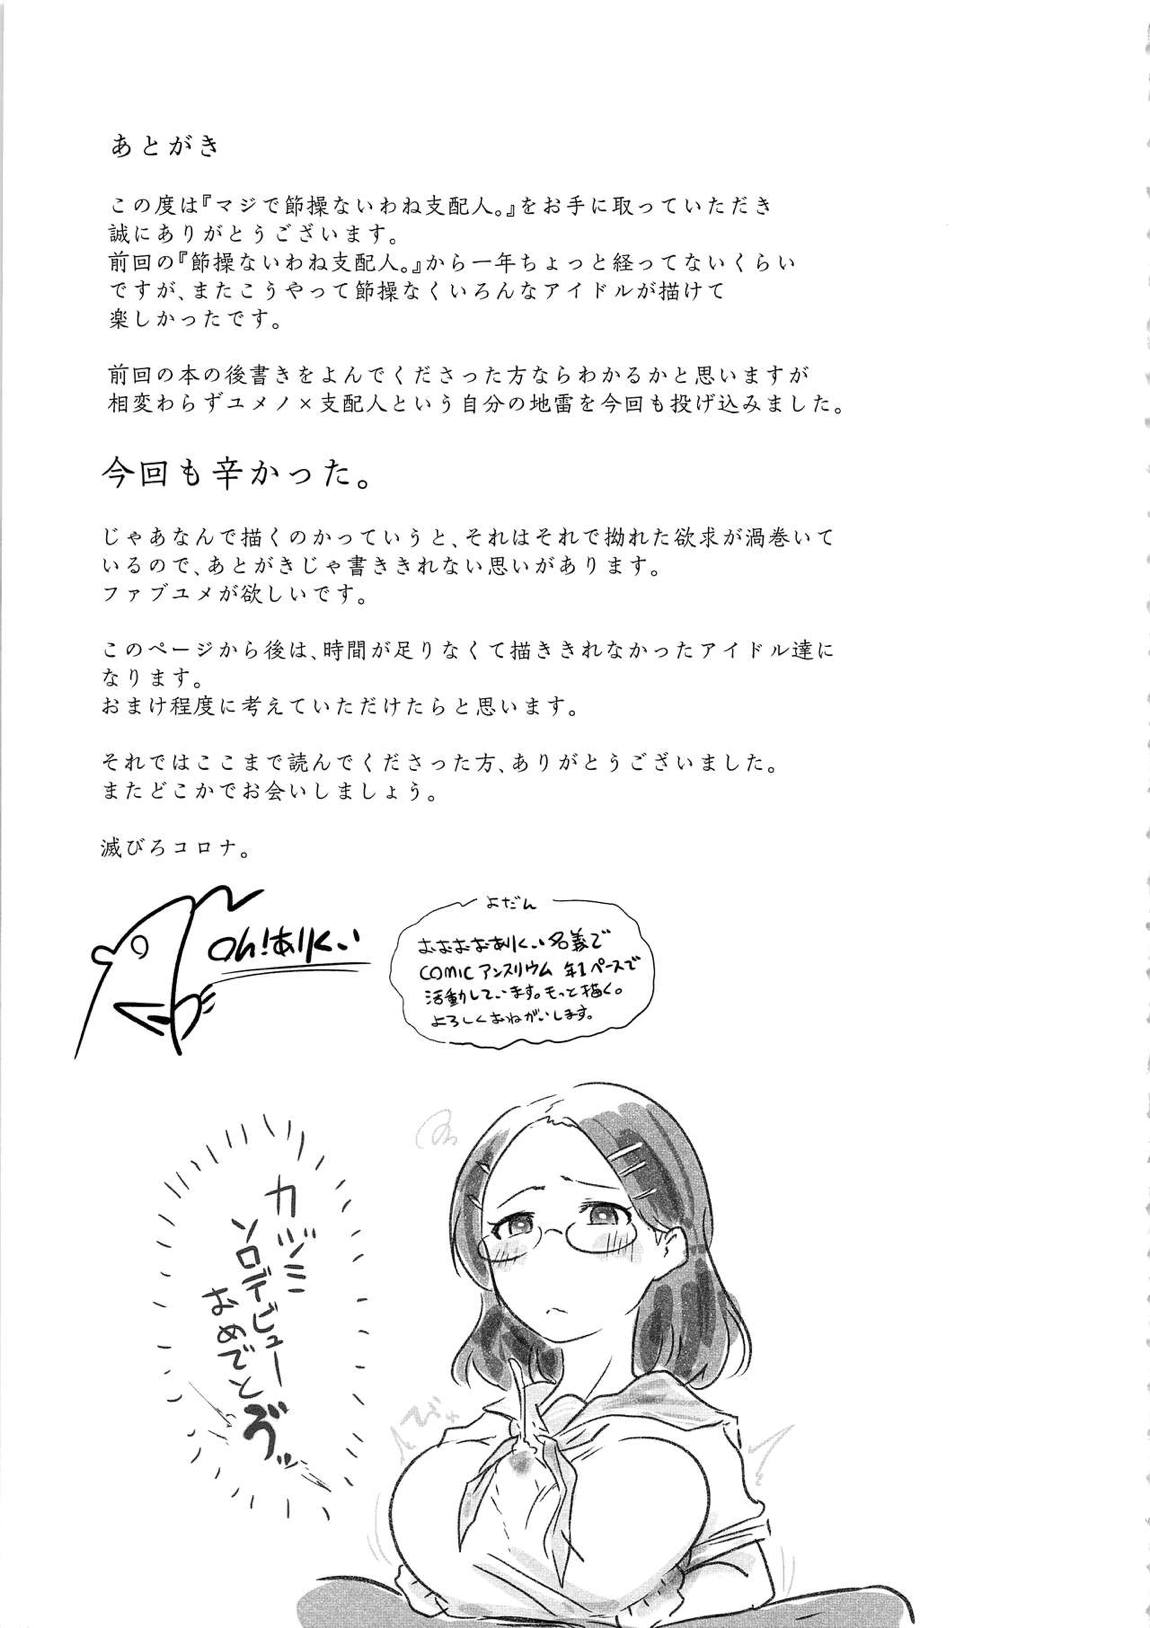 あとがき
この度は『マジで節操ないわね支配人。』をお手に取っていただき
誠にありがとうございます。
前回の『節操ないわね支配人。』から一年ちょっと経ってないくらい
ですが、またこうやって節操なくいろんなアイドルが描けて
楽しかったです。
前回の本の後書きをよんでくださった方ならわかるかと思いますが
相変わらずユメノ×支配人という自分の地雷を今回も投げ込みました。
今回も辛かった。
じゃあなんで描くのかっていうと、それはそれで拗れた欲求が渦巻いて
いるので、あとがきじゃ書ききれない思いがあります。
ファブユメが欲しいです。
このページから後は、時間が足りなくて描ききれなかったアイドル達に
なります。
おまけ程度に考えていただけたらと思います。
それではここまで読んでくださった方、ありがとうございました。
またどこかでお会いしましょう。
滅びろコロナ。
Oh!ありくい
よだん
おおおおありくい名義で
COMICアンスリウム 年1ペースで
活動しています。もっと描く。
よろしくおねがいします。
カヅミ
ソロデビュー
おめでとう